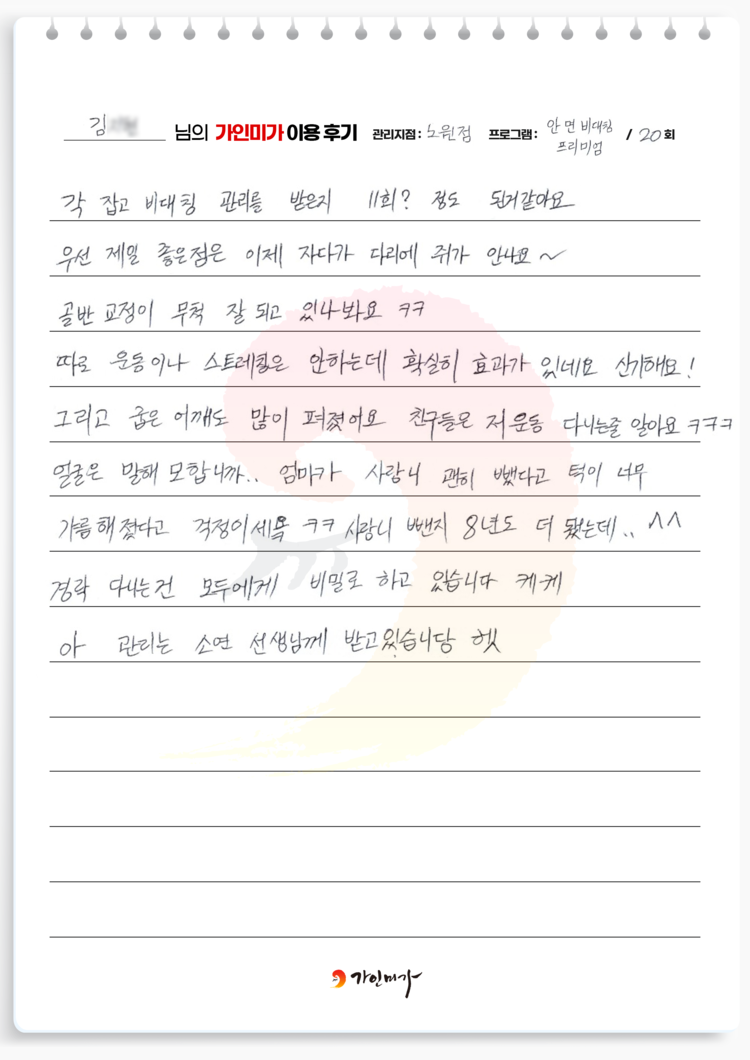 김 님의 가인미가 이용 후기 관리지점 : 노원점 프로그램 : 안면비대칭 프리미엄 / 20회
각 잡고 비대칭 관리를 받은지 11회? 정도 된거같아요
우선 제일 좋은점은 이제 자다가 다리에 쥐가 안나요~
골반 교정이 무척 잘 되고 있나봐요 ㅋㅋ
따로 운동이나 스트레칭은 안하는데 확실히 효과가 있네요 신기해요!
그리고 굽은 어깨도 많이 펴졌어요 친구들은 저 운동 다니는줄 알아요 ㅋㅋㅋ
얼굴은 말해 모합니까.. 엄마가 사랑니 괜히 뺐다고 턱이 너무
갸름해졌다고 걱정이세욬 ㅋㅋ 사랑니 뺀지 8년도 더 됐는데.. ^^
경락 다니는건 모두에게 비밀로 하고 있습니다 케케
아 관리는 소연 선생님께 받고있습니당 헷
가인미가